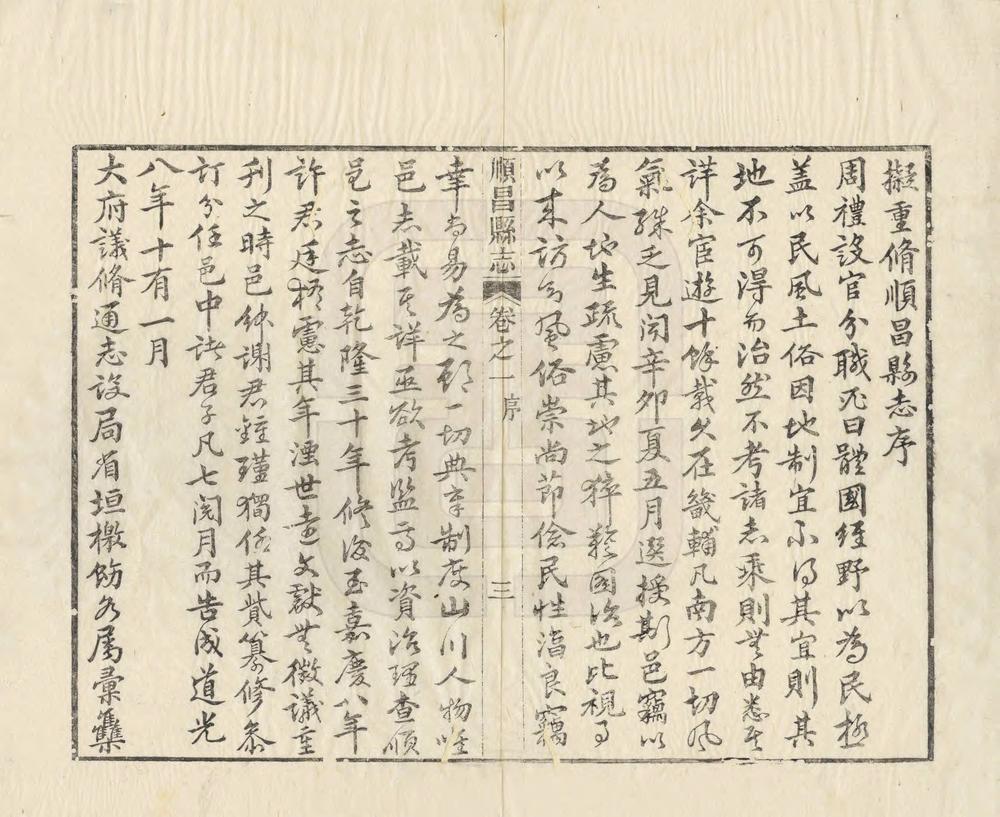 擬重脩順昌縣志序
周禮設官分職既曰體國經野以為民極
蓋以民風土俗因地制宜不得其宜則其
地不可得而治然不考諸志乘則無由悉其
詳余宦遊十餘載久在畿輔凡南方一切風
氣殊乏見聞辛卯夏五月選授斯邑竊以
為人地生疏慮其地之猝難圖治也比視事
以來訪知風俗崇尚節儉民性溫良竊
順昌縣志 卷之一 序 三
幸尚易為之顧一切典章制度山川人物唯
邑志載其詳亟欲考鑒焉以資治理查順
邑之志自乾隆三十年修後至嘉慶八年
許君廷梧慮其年湮世遠文獻無徵議重
刊之時邑紳謝君鍾瑾獨任其貲纂修叅
訂分任邑中諸君子凡七閱月而告成道光
八年十有一月
大府議脩通志設局省垣檄飭各屬彙集